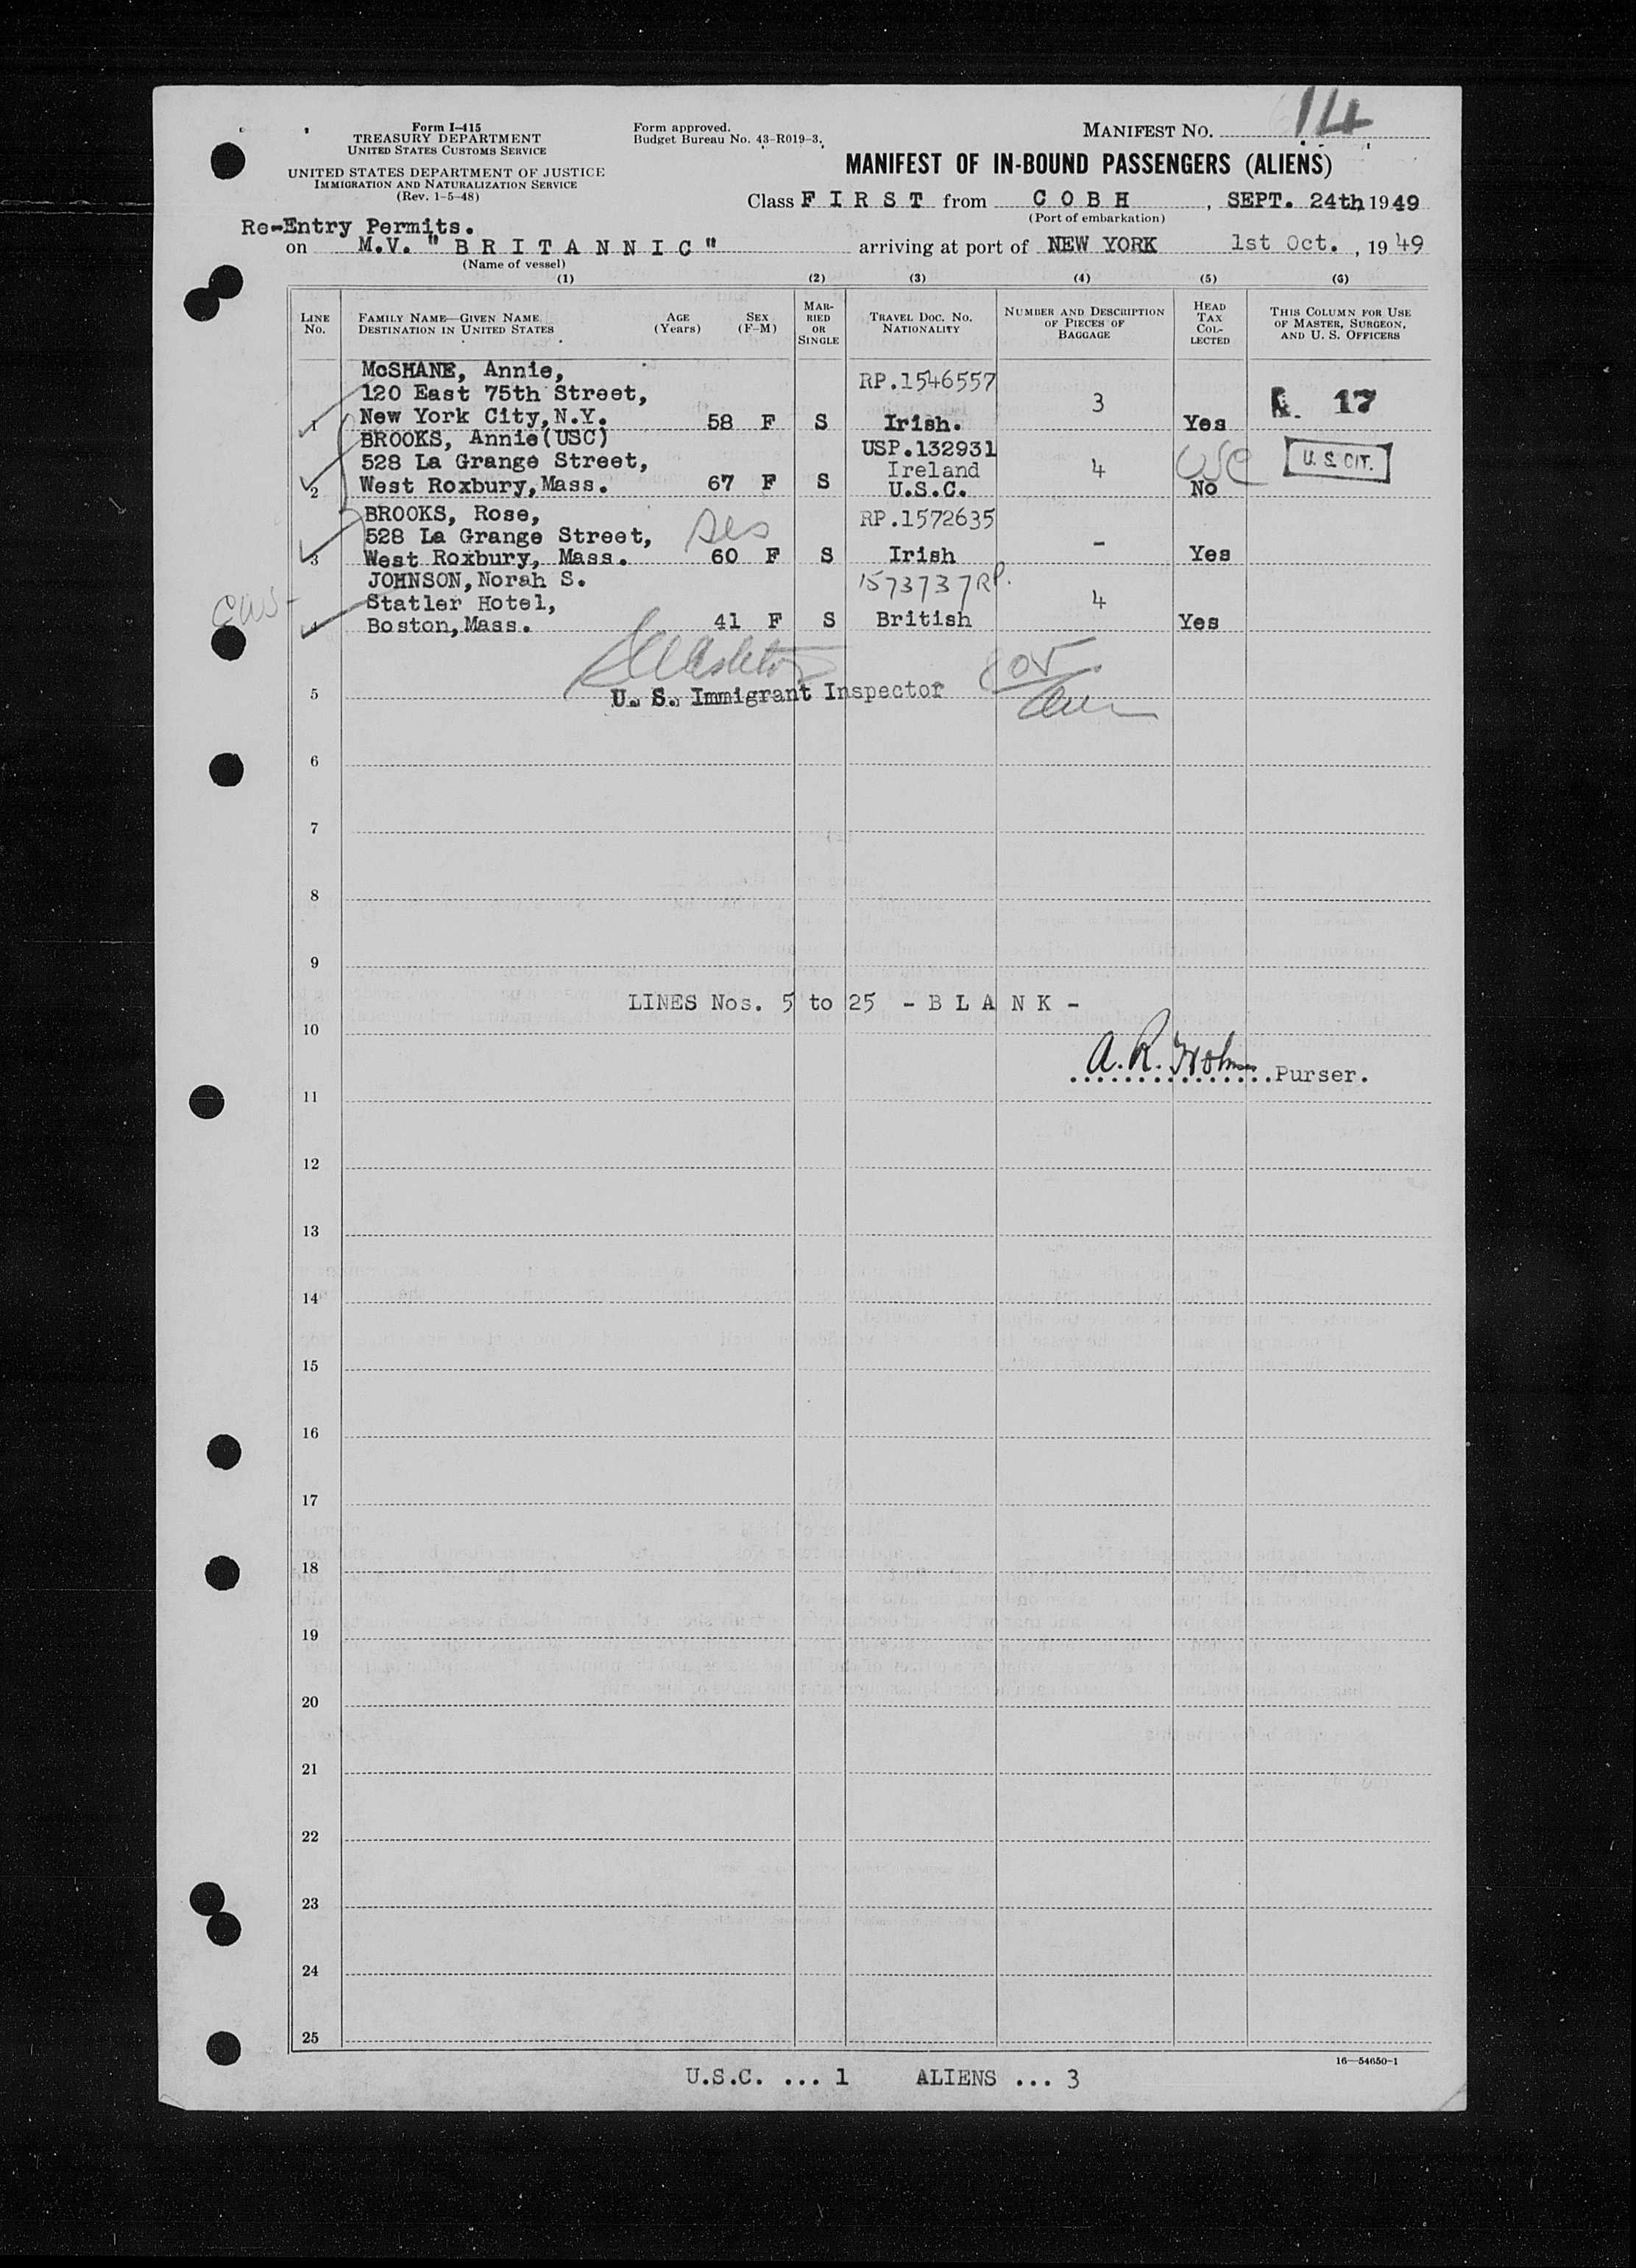 14
Form I-415
TREASURY DEPARTMENT
UNITED STATES CUSTOMS SERVICE
UNITED STATES DEPARTMENT OF JUSTICE
IMMIGRATION AND NATURALIZATION SERVICE
(Rev. 1-5-48)
Form approved.
Budget Bureau No. 43-R019-3.
MANIFEST NO.
MANIFEST OF IN-BOUND PASSENGERS (ALIENS)
Class F I R S T from C O B H , SEPT. 24th 1949
(Port of embarkation)
Re-Entry Permits.
on M.V. "B R I T A N N I C" arriving at port of NEW YORK 1st Oct. , 1949
(Name of vessel)
(1) (2) (3) (4) (5) (6)
LINE NO.
FAMILY NAME—GIVEN NAME
DESTINATION IN UNITED STATES
AGE (Years)
SEX (F-M)
MARRIED OR SINGLE
TRAVEL DOC. NO. NATIONALITY
NUMBER AND DESCRIPTION OF PIECES OF BAGGAGE
HEAD TAX COLLECTED
THIS COLUMN FOR USE OF MASTER, SURGEON, AND U. S. OFFICERS
McSHANE, Annie,
120 East 75th Street, RP.1546557 3
1 New York City, N.Y. 58 F S Irish. Yes 17
BROOKS, Annie(USC) USP.132931
528 La Grange Street, Ireland 4 USC U. S. CIT.
2 West Roxbury, Mass. 67 F S U.S.C. No
BROOKS, Rose, RP.1572635
528 La Grange Street, -
3 West Roxbury, Mass. 60 F S Irish Yes
JOHNSON, Norah S. 1573737RP.
Statler Hotel, 4
4 Boston, Mass. 41 F S British Yes
5 U. S. Immigrant Inspector
6
7
8
9
LINES Nos. 5 to 25 - B L A N K -
10
A. R. Purser.
11
12
13
14
15
16
17
18
19
20
21
22
23
24
25
16—54650-1
U.S.C. ... 1 ALIENS ... 3